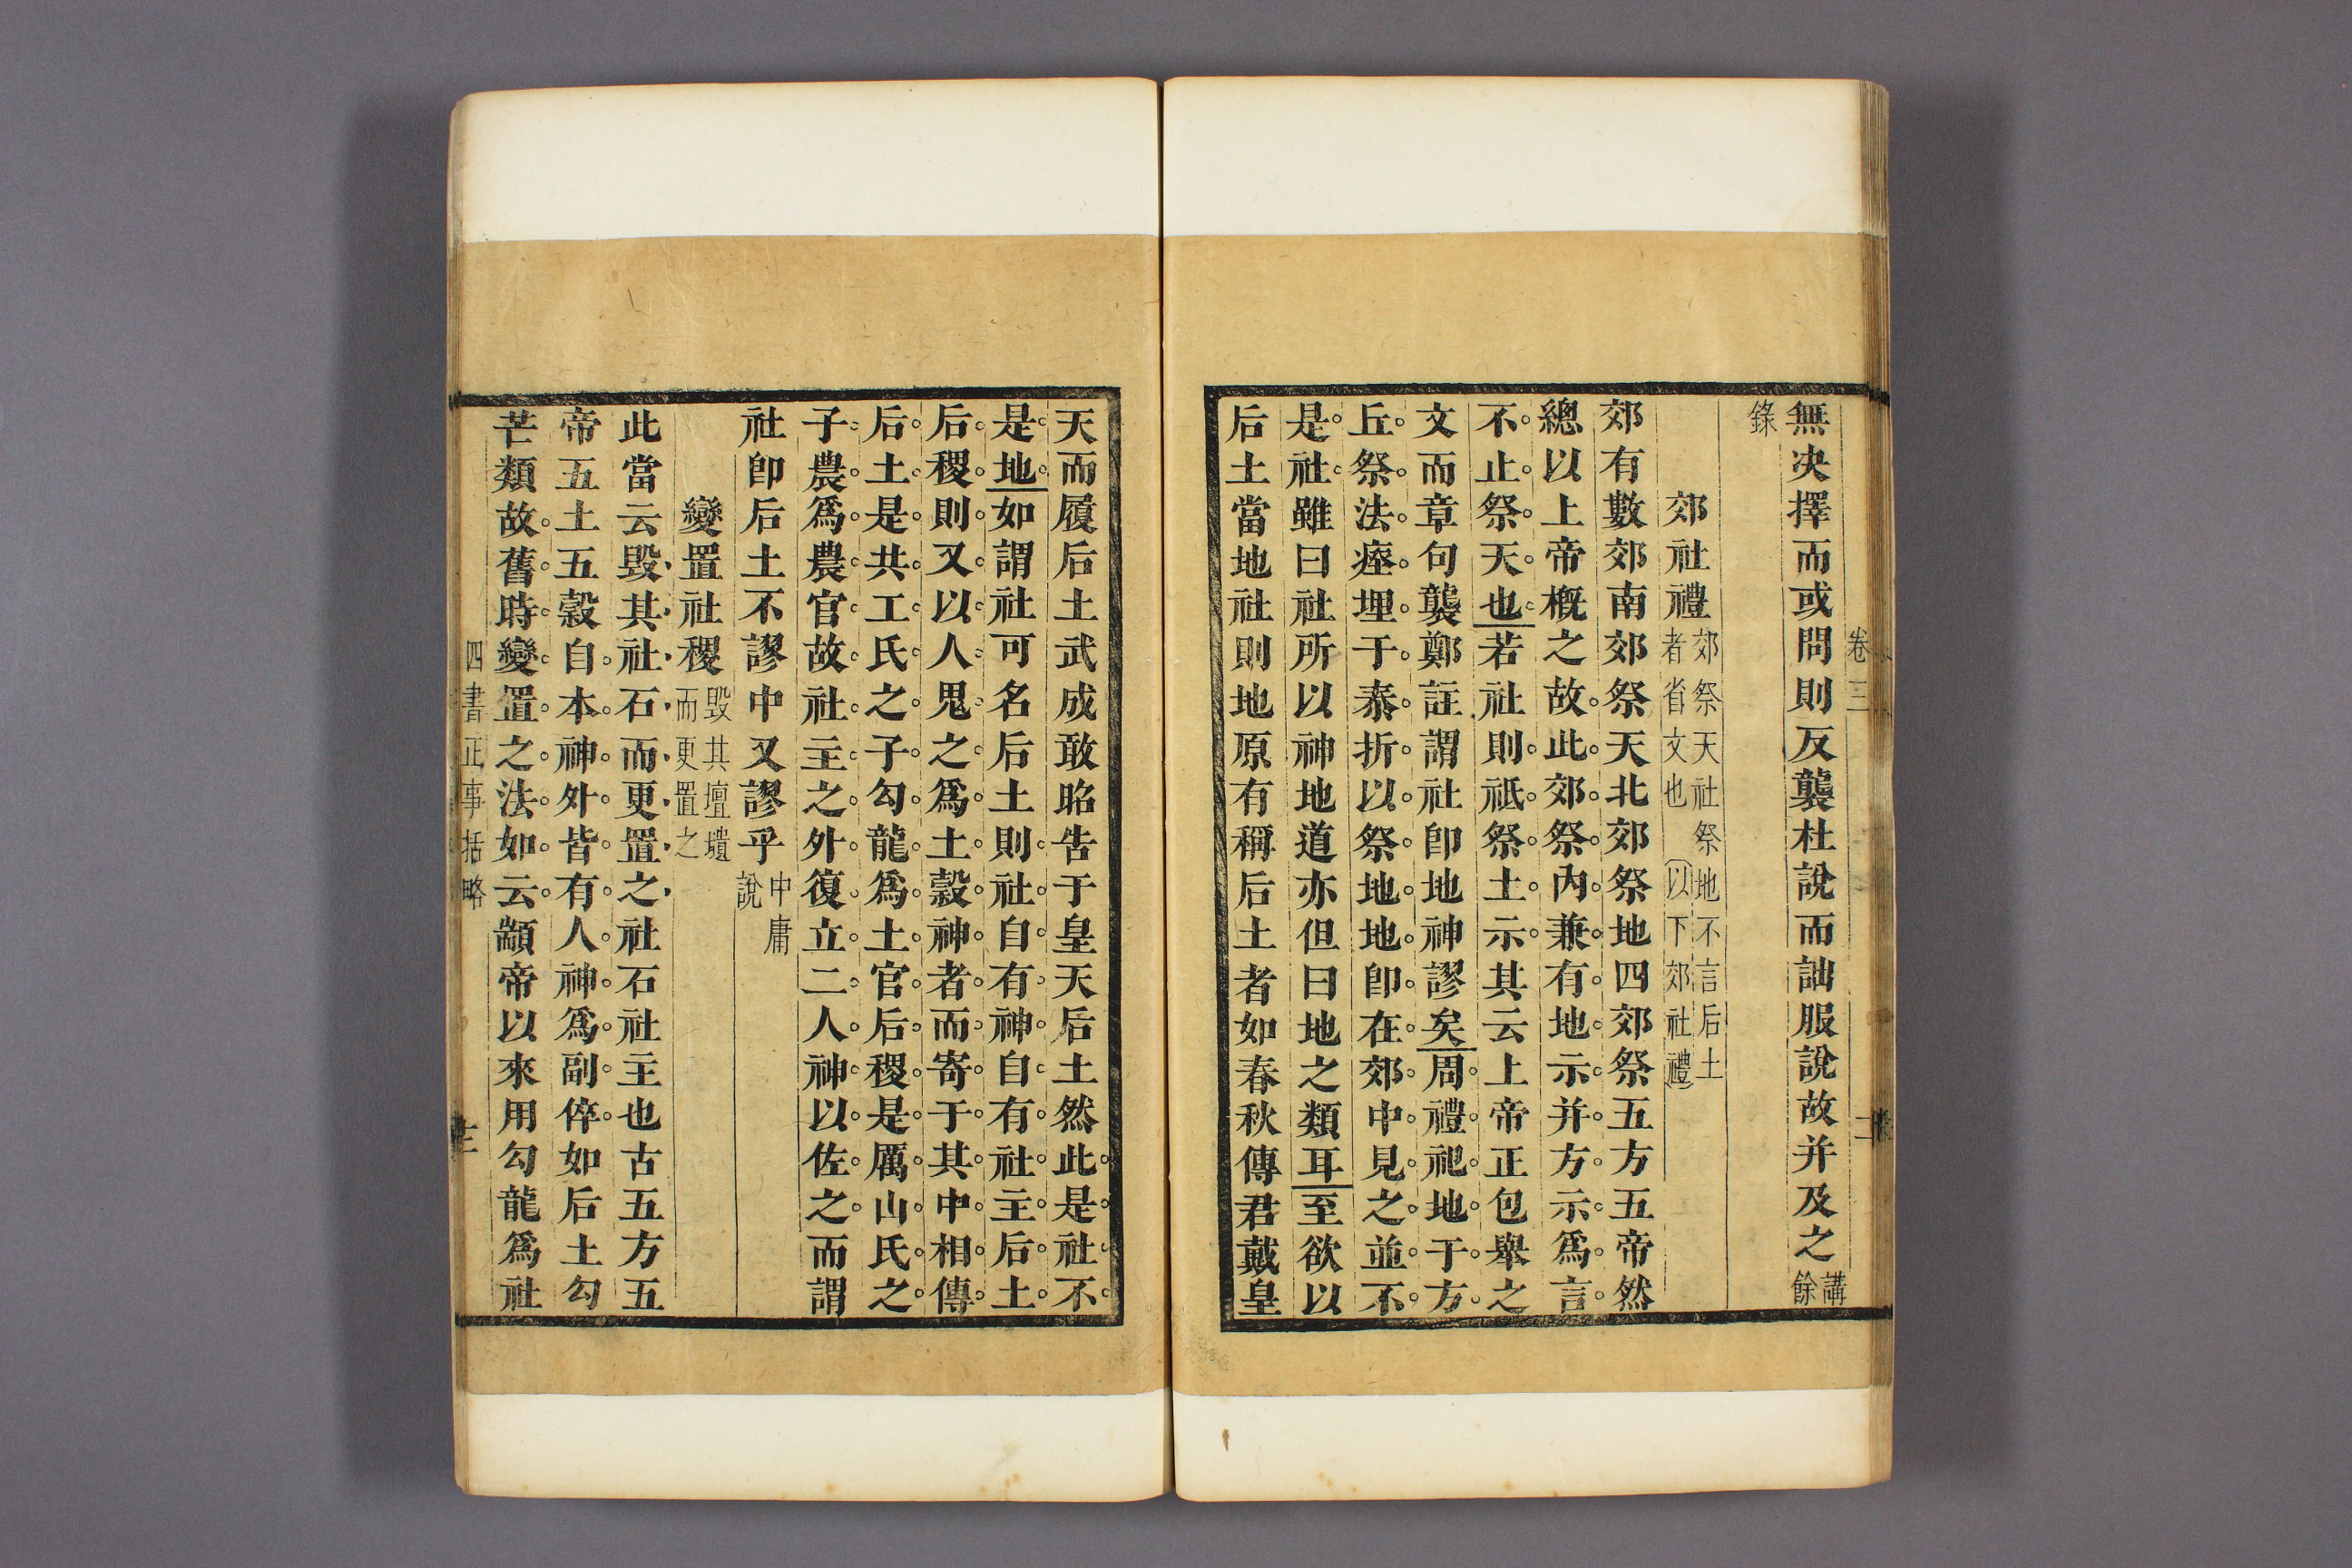 卷三
二
無决擇而或問則反襲杜說而詘服說故并及之講餘
錄
郊社禮郊祭天社祭地不言后土者省文也 以下郊社禮
郊有數郊南郊祭天北郊祭地四郊祭五方五帝然
總以上帝槪之故此郊祭內兼有地示并方示爲言
不止祭天也若社則祇祭土示其云上帝正包舉之
文而章句襲鄭註謂社卽地神謬矣周禮祀地于方
丘祭法瘞埋于泰折以祭地地卽在郊中見之並不
是社雖曰社所以神地道亦但曰地之類耳至欲以
后土當地社則地原有稱后土者如春秋傳君戴皇
天而履后土武成敢昭告于皇天后土然此是社不
是地如謂社可名后土則社自有神自有社主后土
后稷則又以人鬼之爲土穀神者而寄于其中相傳
后土是共工氏之子勾龍爲土官后稷是厲山氏之
子農爲農官故社主之外復立二人神以佐之而謂
社卽后土不謬中又謬乎中庸說
變置社稷毀其壇壝而更置之
此當云毀其社石而更置之社石社主也古五方五
帝五土五穀自本神外皆有人神爲副倅如后土勾
芒類故舊時變置之法如云顓帝以來用勾龍爲社
四書正事括略